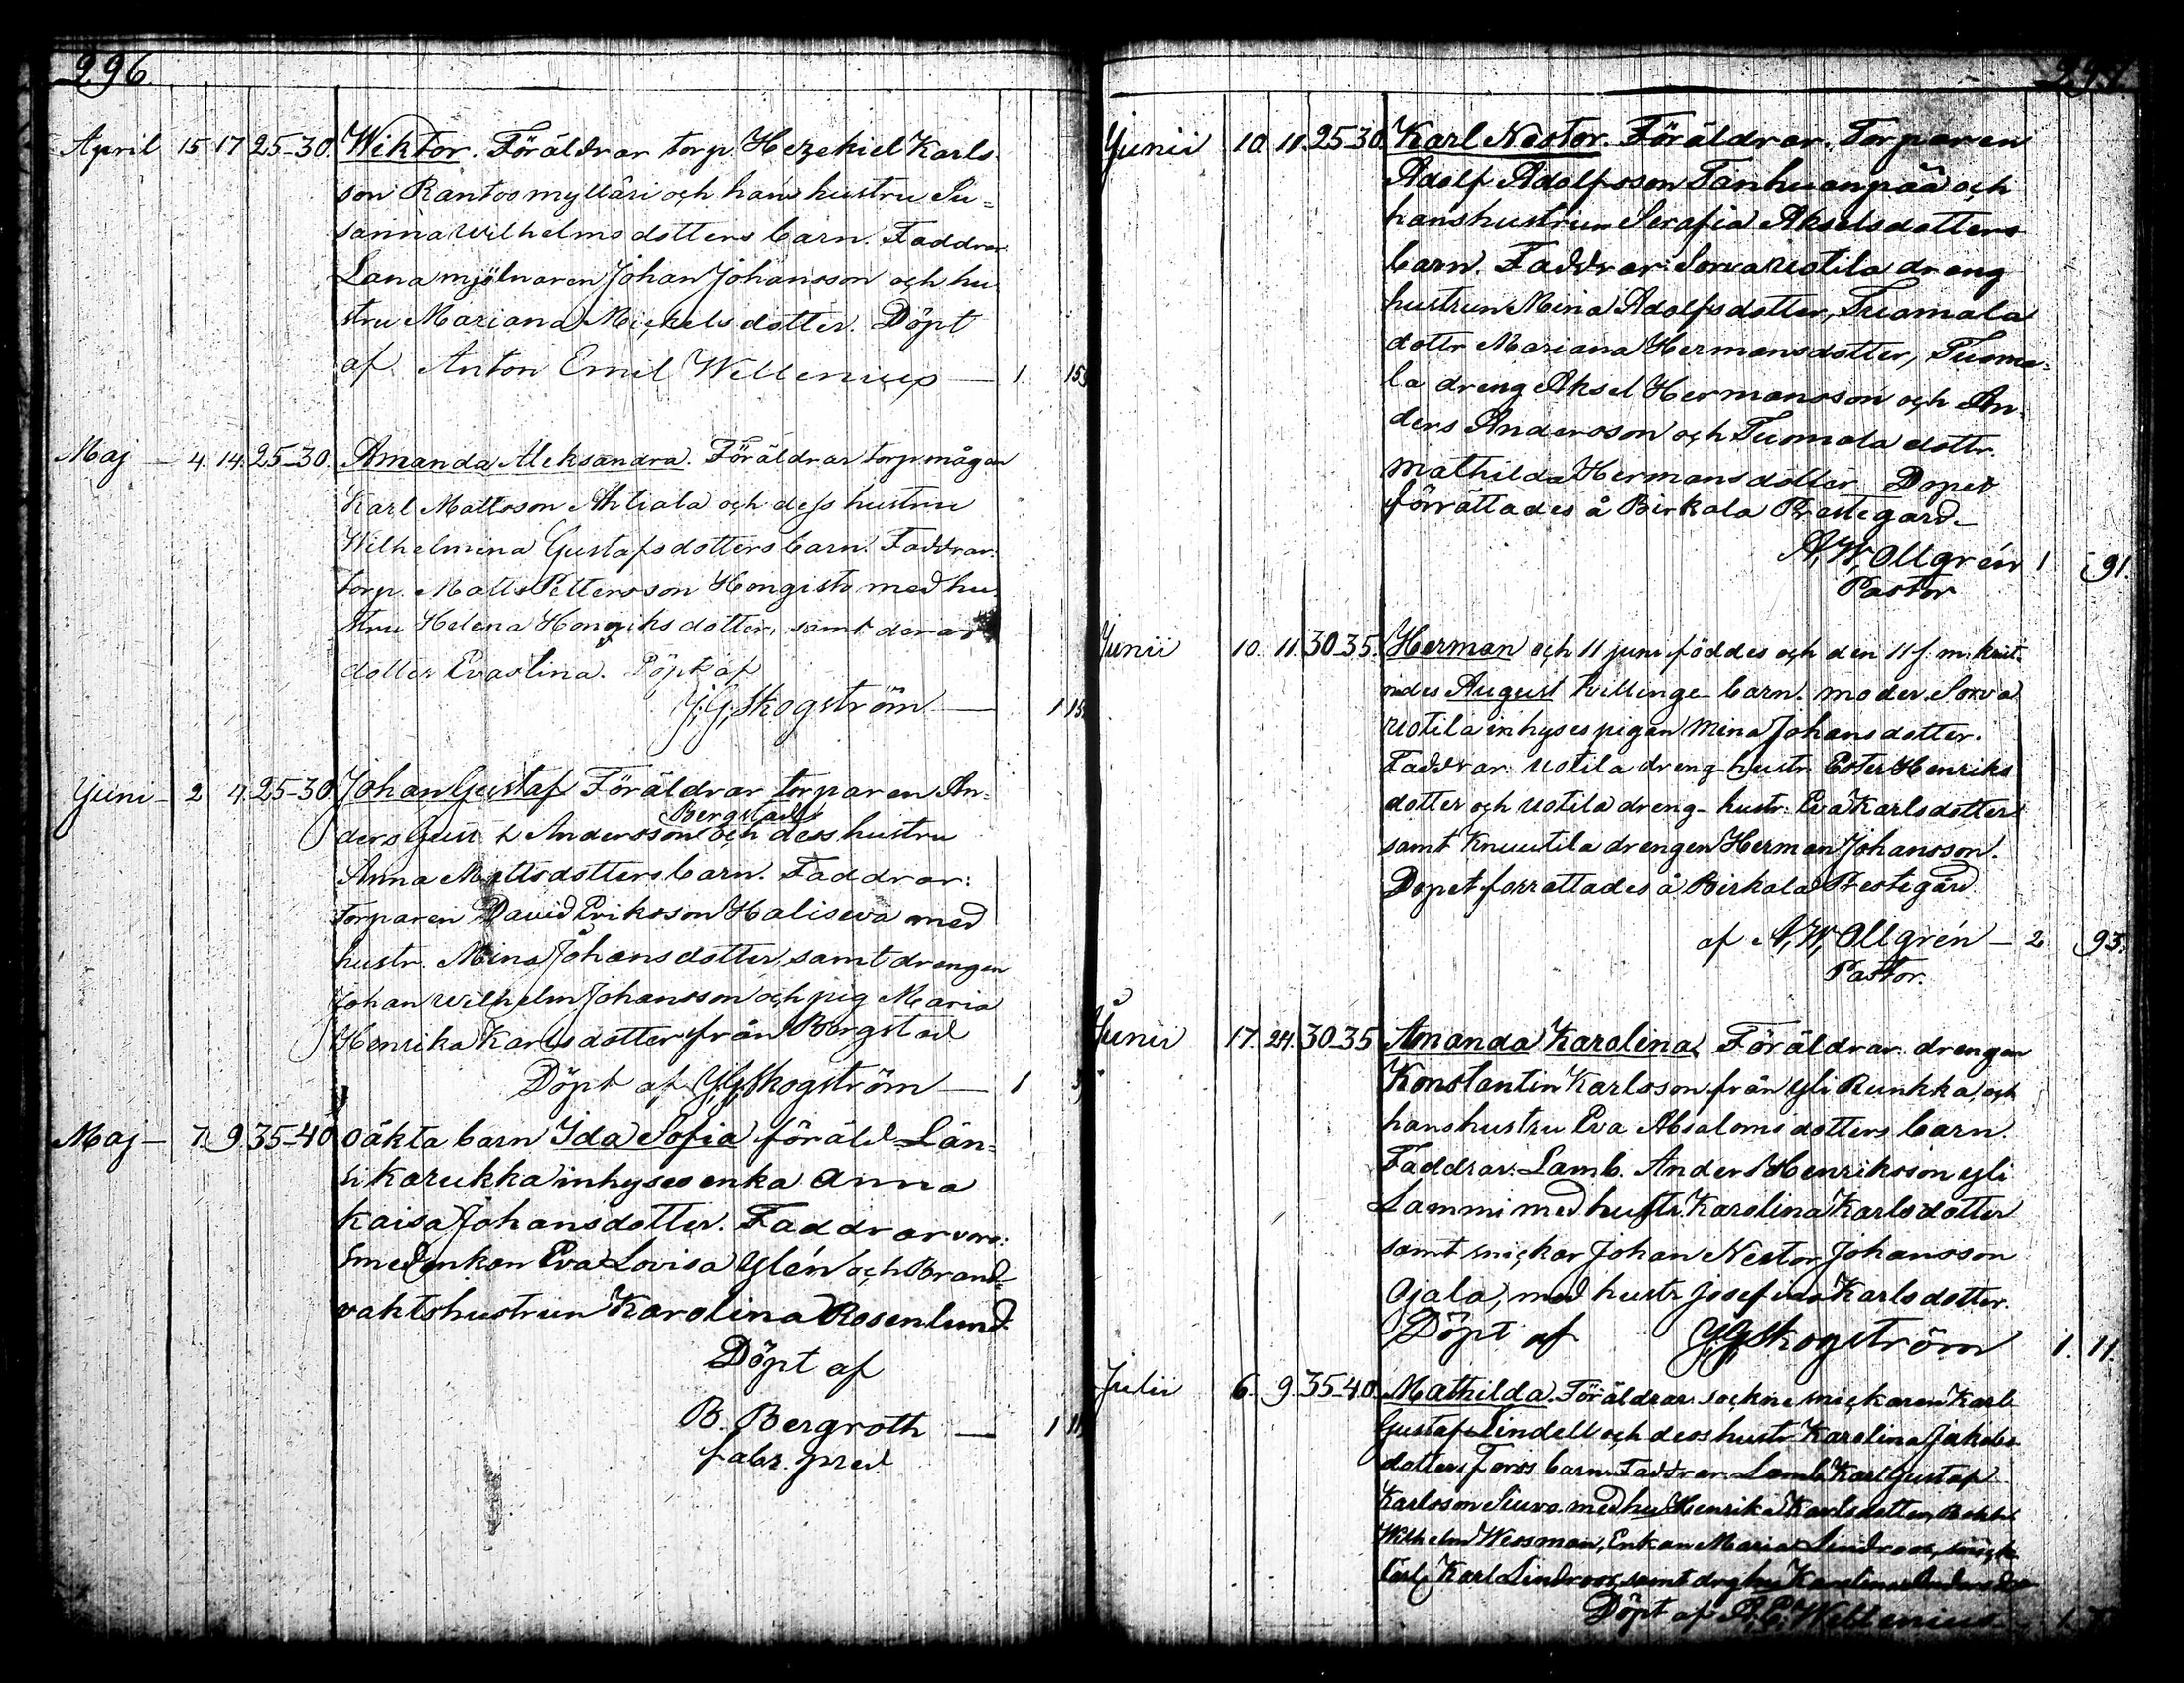 296.
April 15 17 25-30. Wiktor. Föräldrar torp. Hezekiel Karls-
son Rantoomylläri och hans hustru Su=
sanna Wilhelmsdotters barn. Faddrar
Lana mjölnaren Johan Johansson och hu-
stru Mariana Mickelsdotter. Döpt
af Anton Emil Wellenius — 1. 15
Maj — 4. 14. 25-30. Amanda Aleksandra. Föräldrar torp. mågen
Karl Mattsson Ahliala och dess hustru
Wilhelmina Gustafsdotters barn. Faddrar.
torp. Matts Pettersson Hongisto med hu-
stru Helena dotter, samt deras
dotter Evastina. Döpt af
J. G. Skogström — 1 15
Juni — 2 4. 25-30 Johan Gustaf Föräldrar torparen An=
Bergstad
ders Gust Andersson och dess hustru
Anna Mattsdotters barn. Faddrar:
Torparen David Eriksson Haliseva med
hustr. Mina Johansdotter, samt drengen
Johan Wilhelm Johansson och pig Maria
Henrika Karlsdotter från Bergstad
Döpt af J. G. Skogström — 1
Maj — 7. 9. 35-40 oäkta barn Ida Sofia föräld Län=
sikarukka inhyses enka Anna
Kaisa Johansdotter. Faddrar voro:
Smedenkan Eva Lovisa Ylén och Brand=
vaktshustrun Karolina Rosenlund.
Döpt af
B. Bergroth — 1
fabr. pred.
297.
Junii 10. 11. 25-30. Karl Nestor. Föräldrar. Torparen
Adolf Adolfsson Tanhuanpää och
hans hustrun Serafia Akselsdotters
barn. Faddrar: Sorva Uotila dreng
hustrun Mina Adolfsdotter, Tuomala
dottr Mariana Hermansdotter, Tuoma=
la dreng Aksel Hermansson och An=
ders Andersson och Tuomala dottr.
Mathilda Hermansdotter Dopet
förrättades å Birkala Prestegård —
A. W. Ollgrén 1 91.
Pastor
Junii 10. 11. 30-35. Herman och 11 juni föddes och den 11 f. m. krist=
nades August tvillinge barn. moder Sorva
Uotila inhyses pigan Mina Johansdotter.
Faddrar: Uotila dreng hustr. Ester Henriks
dotter och Uotila dreng- hustr. Eva Karlsdotter
samt Knuutila drengen Herman Johansson.
Dopet förrättades å Birkala Prestegård
af A. W. Ollgrén — 2 93.
Pastor.
Junii 17. 24. 30-35 Amanda Karolina Föräldrar: drengen
Konstantin Karlsson från Yli Runkka, och
hans hustru Eva Absalomsdotters barn.
Faddrar. Lamb. Anders Henriksson Yli
Sammi med hustr. Karolina Karlsdotter
samt snickar Johan Nestor Johansson
Ojala, med hustr Josefina Karlsdotter.
Döpt af J G Skogström 1. 11.
Julii 6. 9. 35-40. Mathilda. Föräldrar: sockne snickaren Karl
Gustaf Lindell och dess hustr Karolina Jakobs
dotters Forss barn. Faddrar: Lamb. Karl Gustaf
Karlsson Siuvo med hu Henrika Karlsdotter,
Wilhelm Wessman, Enkan Maria Lindroos,
Karl Lindroos, samt
Döpt af A. E. Wellenius — 1.